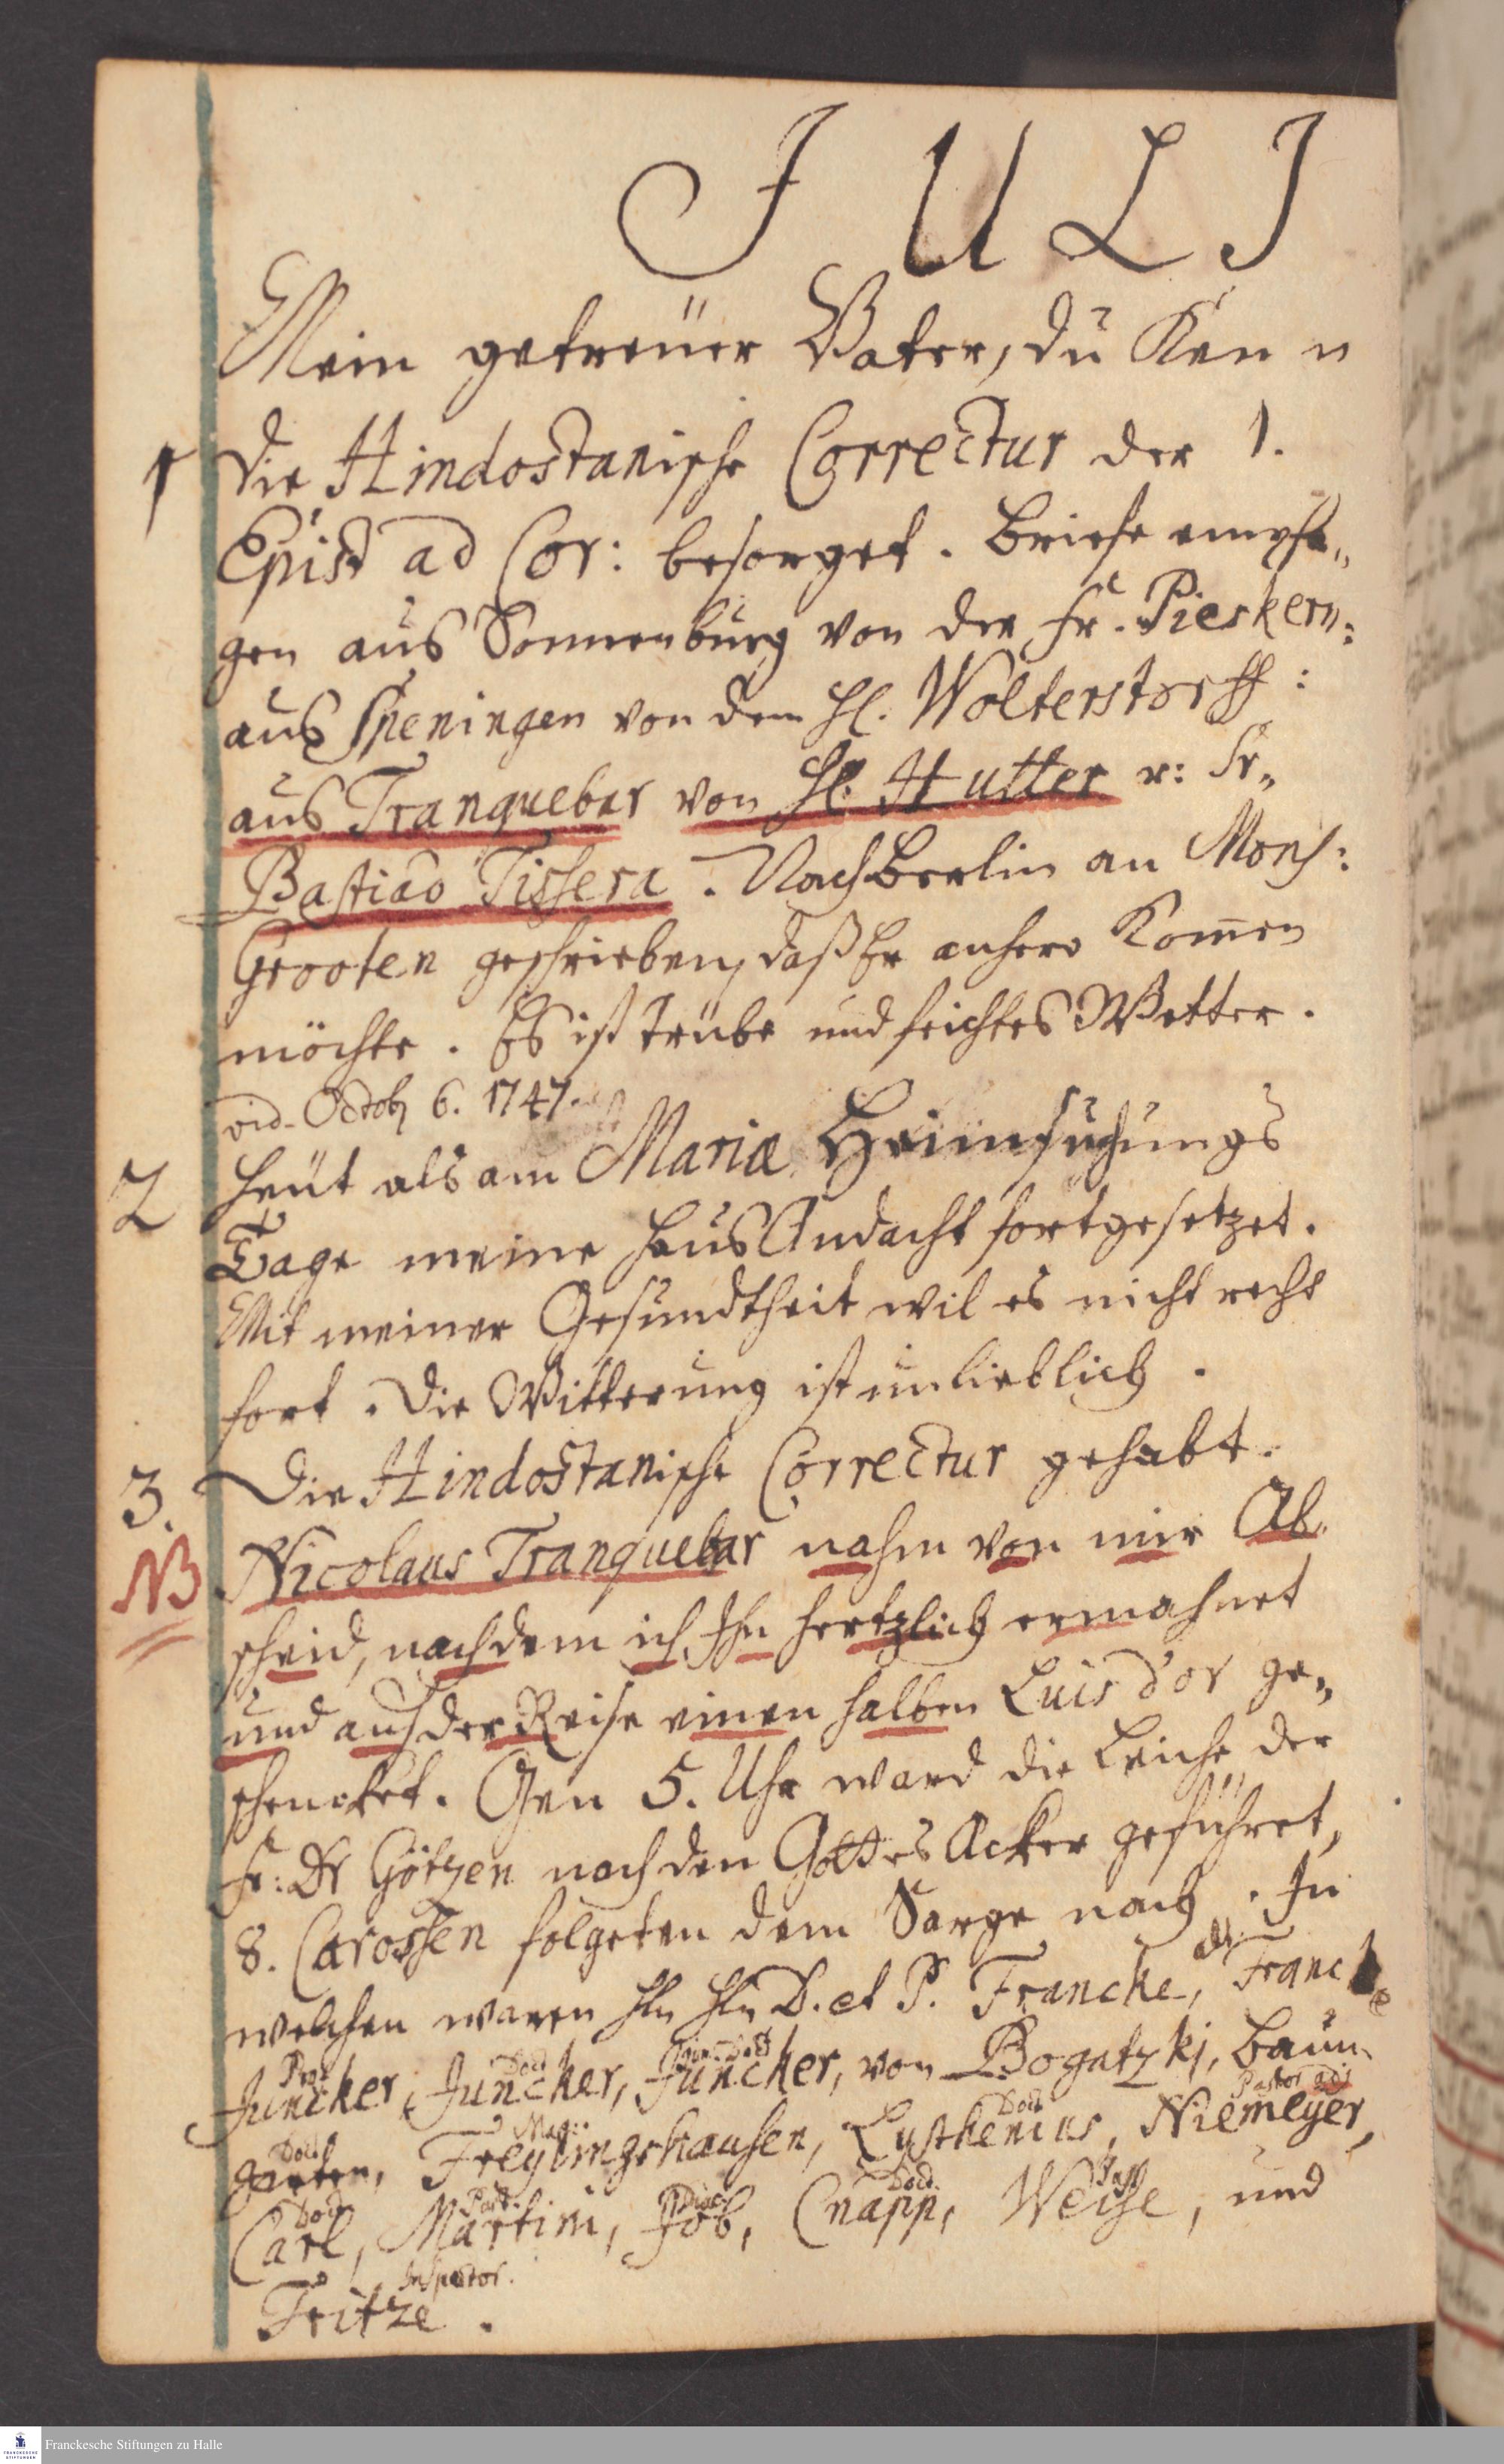 JULI
Mein getreuer Vater, du Ken n
1 die Hindostanische Correctur der 1.
Epist ad Cor: besorget. Briefe empfa„
gen aus Sonnenburg von der Fr. Pieskern:
aus Speningen von dem H. Wolterstorff:
aus Tranquebar von H. Hutter u: Sr„
Bastiao Tissera. Nach Berlin an Mons:
Grooten geschrieben, daß Er anhero Komen
möchte. Es ist trübe und feichtes Wetter.
vid. Octob 6. 1747.
2 Heut als am Mariæ Heimsuchungs
Tage meine HausAndacht fortgesetzet.
Mit meiner Gesundtheit wil es nicht recht
fort. Die Witterung ist unlieblich.
3. Die Hindostanische Correctur gehabt.
NB Nicolaus Tranquebar nahm von mir Ab„
scheid, nachdem ich Ihn hertzlich ermahnet
und auf der Reise einen halben Luis d'or ge„
schencket. Gen 5. Uhr ward die Leiche der
Fr: Dr Götzen nach den Gottes Acker geführet,
8. Carossen folgeten dem Sarge nach. In
adj.
welchen waren Hln Hln D. et P. Francke, Franck
Prof. Doct
Juncker, Juncker, Juncker, von Bogatzki, Baum
Doct Mag: Doct Pastor adj
garten, Freylingshausen, Lysthenius, Niemeyer,
Doct Past. Diac. Doct. Insp
Carl, Martini, Job, Cnapp, Weise, und
Inspector.
Fritze.
Franckesche Stiftungen zu Halle